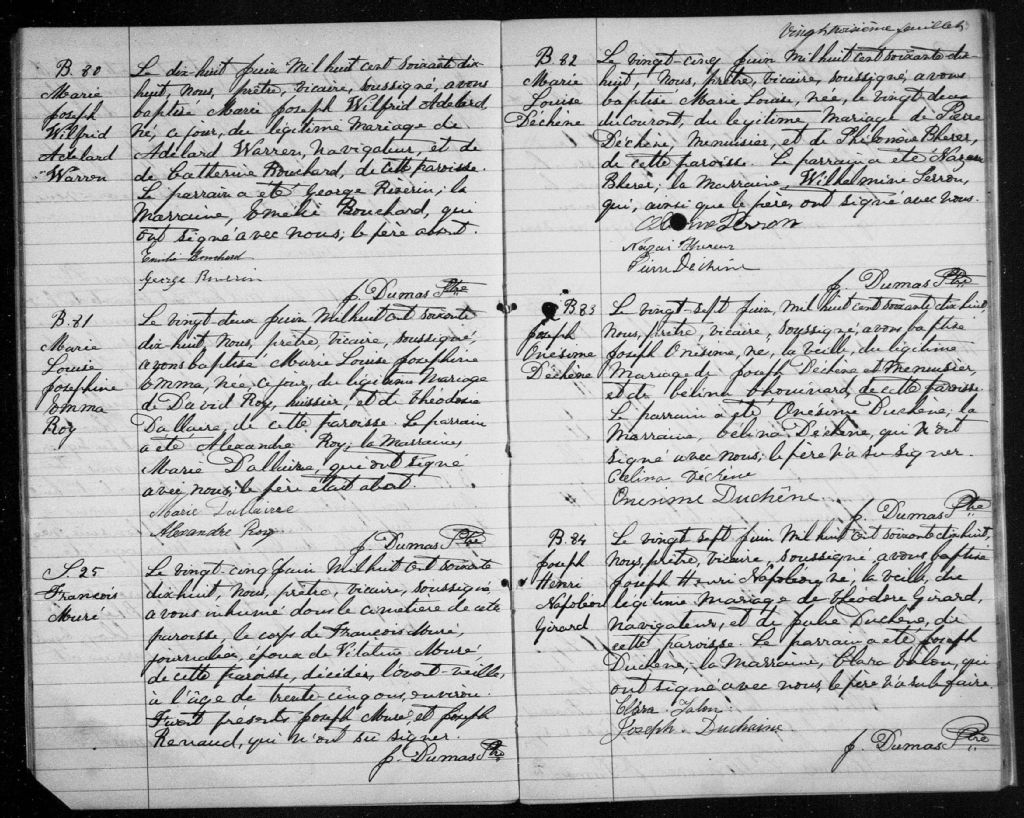 B. 80
Marie
Joseph
Wilfrid
Adélard
Warren
Le dix-huit Juin Mil huit cent soixante dix-
huit, Nous, prêtre, vicaire, soussigné, avons
baptisé Marie Joseph Wilfrid Adélard
né, ce jour, du légitime Mariage de
Adélard Warren, Navigateur, et de
de Catherine Bouchard, de cette paroisse.
Le parrain a été George Riverin; la
Marraine, Emélie Bouchard, qui
ont signé avec nous; le père absent.
Emilie Bouchard
George Riverin
J. Dumas Ptre
B. 81
Marie
Louise
Joséphine
Emma
Roy
Le vingt-deux Juin Mil huit cent soixante
dix-huit, Nous, prêtre, vicaire, soussigné,
avons baptisé Marie Louise Joséphine
Emma, née, ce jour, du légitime Mariage
de David Roy, huissier, et de Théodosie
Dallaire, de cette paroisse. Le parrain
a été Alexandre Roy; la Marraine,
Marie Dallaire, qui ont signé
avec nous; le père était absent.
Marie Dallaire
Alexandre Roy
J. Dumas Ptre
S. 25
François
Muré
Le vingt-cinq Juin Mil huit cent soixante
dix huit, Nous, prêtre, vicaire, soussigné,
avons inhumé dans le cimetière de cette
paroisse, le corps de François Muré,
journalier, époux de Vitaline Muré
de cette paroisse, décédé, l'avant-veille,
à l'âge de trente-cinq ans, environ.
Furent présents Joseph Muré, et Joseph
Renaud, qui n'ont su signer.
J. Dumas Ptre
Vingt troisième feuillet
B. 82
Marie
Louise
Déchène
Le vingt-cinq Juin Mil huit cent soixante dix-
huit, Nous, prêtre, vicaire, soussigné, avons
baptisé Marie Louise, née, le vingt-deux
du courant, du légitime, Mariage de Pierre
Déchène, Menuisier, et de Philomène Bherer,
de cette paroisse. Le parrain a été Nazaire
Bherer; la Marraine, Wilhelmine Perron,
qui, ainsi que le père, ont signé avec nous.
Perron
Pierre Déchène
J. Dumas Ptre
B. 83
Joseph
Onésime
Déchène
Le vingt-sept Juin, Mil huit cent soixante dix huit,
Nous, prêtre, vicaire, soussigné, avons baptisé
Joseph Onésime, né, la veille, du légitime
Mariage de Joseph Déchène et Menuisier,
et de Célina Chouinard, de cette paroisse.
Le parrain a été Onésime Duchène; la
Marraine, Célina Déchène, qui n'ont
signé avec nous; le père n'a su signer.
Célina Déchène
Onesime Duchêne
J. Dumas Ptre
B. 84
Joseph
Henri
Napoléon
Girard
Le vingt sept Juin Mil huit cent soixante dix huit,
Nous, prêtre, vicaire, soussigné, avons baptisé
Joseph Henri Napoléon, né, la veille, du
légitime Mariage de Théodore Girard,
Navigateur, et de Julie Duchène, de
cette paroisse. Le parrain a été Joseph
Duchène; la Marraine, Clara Talon, qui
ont signé avec nous, le père n'a su le faire.
Clara Talon
Joseph Duchaine
J. Dumas Ptre